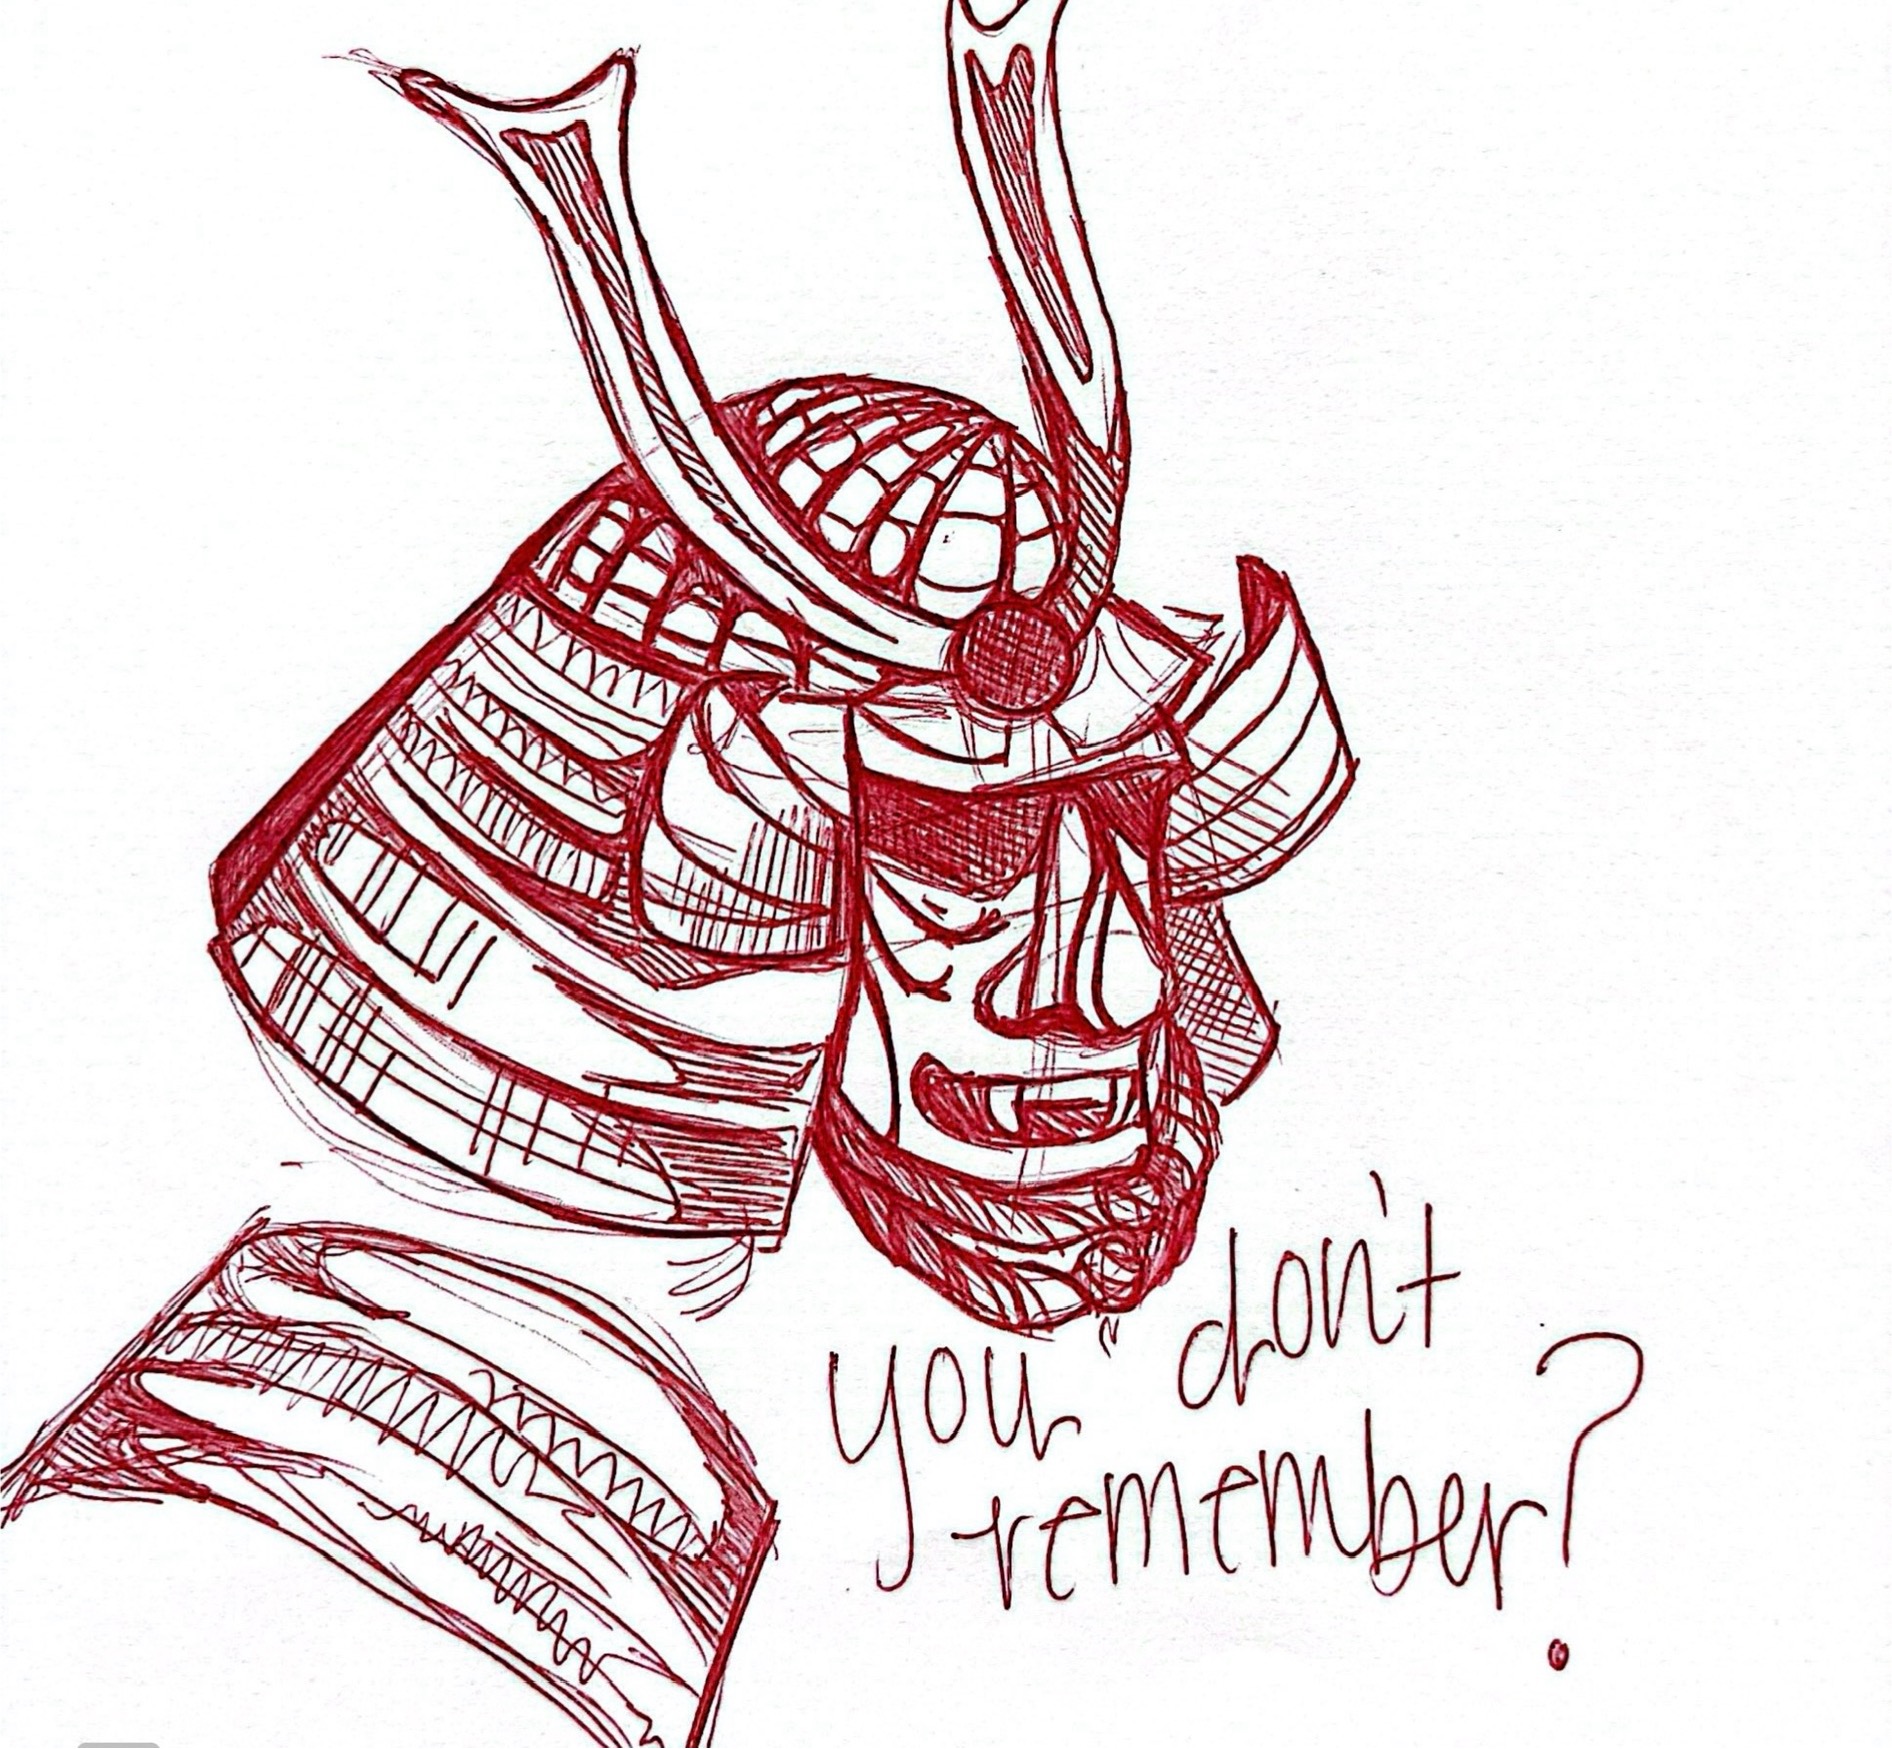 you don't
remember?